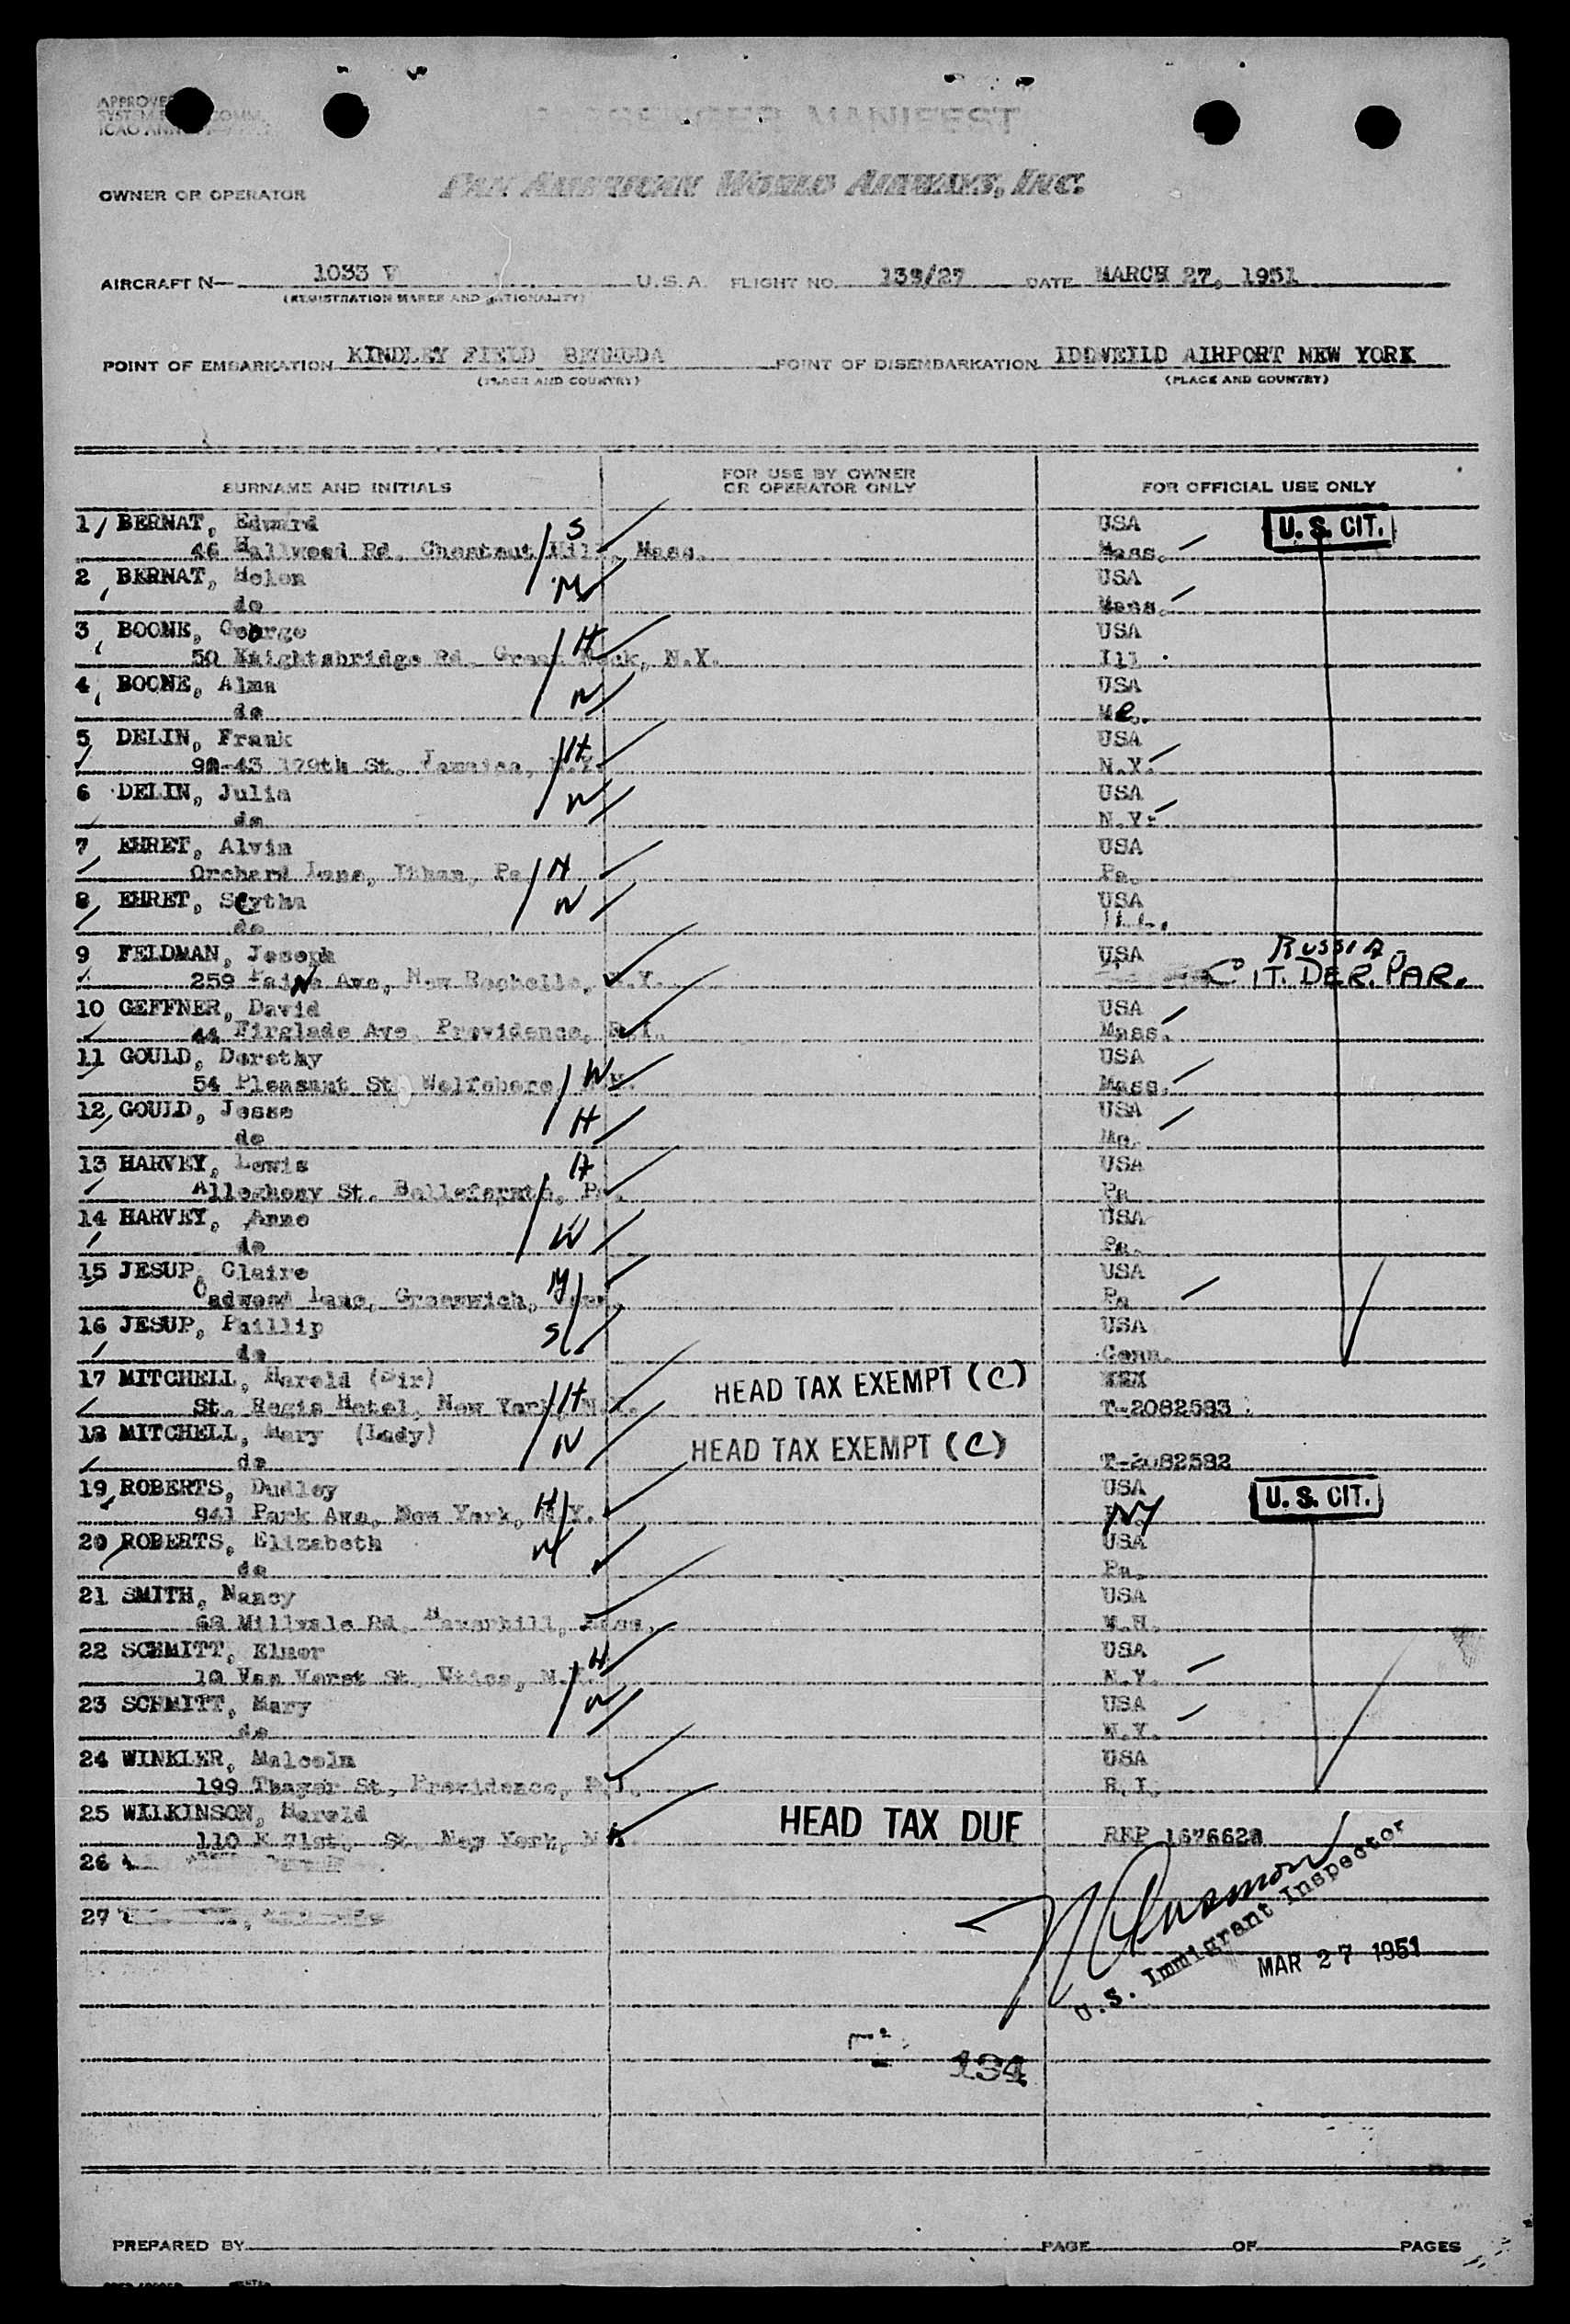 APPROVED
SYSTEM COMM.
ICAO
PASSENGER MANIFEST
OWNER OR OPERATOR PAN AMERICAN WORLD AIRWAYS, INC.
AIRCRAFT N— 1033 V U.S.A. FLIGHT NO. 139/27 DATE MARCH 27, 1951
(REGISTRATION MARKS AND NATIONALITY)
POINT OF EMBARKATION KINDLEY FIELD BERMUDA POINT OF DISEMBARKATION IDDVEILD AIRPORT NEW YORK
(PLACE AND COUNTRY) (PLACE AND COUNTRY)
SURNAME AND INITIALS FOR USE BY OWNER OR OPERATOR ONLY FOR OFFICIAL USE ONLY
1 BERNAT, Edward S USA U. S. CIT.
46 Hallwood Rd. Chestnut Hill, Mass. Mass.
2 BERNAT, Helen M USA
do Mass.
3 BOONE, George H USA
50 Knightsbridge Rd. Great Neck, N.Y. Ill.
4 BOONE, Alma W USA
do Me.
5 DELIN, Frank H USA
90-43 179th St. Jamaica, N.Y. N.Y.
6 DELIN, Julia W USA
do N.Y.
7 EHRET, Alvin H USA
Orchard Lane, Ithan, Pa Pa.
8 EHRET, W USA
do
9 FELDMAN, Joseph USA RUSSIA-
259 Paine Ave, New Rochelle, N.Y. CIT. DER. PAR.
10 GEFFNER, David USA
44 Firglade Ave. Providence, R.I. Mass.
11 GOULD, Dorothy W USA
54 Pleasant St. Wolfeboro, N.H. Mass.
12 GOULD, Jesse H USA
do
13 HARVEY, Lewis H USA
Allegheny St. Bellefonte, Pa. Pa
14 HARVEY, Anne W USA
do Pa.
15 JESUP, Claire M USA
Lane, Greenwich, Conn. Pa
16 JESUP, Phillip S USA
do Conn.
17 MITCHELL, Harold (Sir) H HEAD TAX EXEMPT (C)
St. Regis Hotel, New York, N.Y. T-2082583
18 MITCHELL, Mary (Lady) W HEAD TAX EXEMPT (C)
do T-2082582
19 ROBERTS, Dudley H USA U. S. CIT.
941 Park Ave, New York, N.Y. NY
20 ROBERTS, Elizabeth W USA
do Pa.
21 SMITH, Nancy USA
68 Millvale Rd. Haverhill, Mass. N.H.
22 SCHMITT, Elmer H USA
10 Van Vorst St. Utica, N.Y. N.Y.
23 SCHMITT, Mary W USA
do N.Y.
24 WINKLER, Malcolm USA
199 Thayer St, Providence, R.I. R.I.
25 WILKINSON, Harold HEAD TAX DUE
110 E 71st. St. New York, N.Y. REP 1676628
26
27
U.S. Immigrant Inspector
MAR 27 1951
134
PREPARED BY PAGE OF PAGES